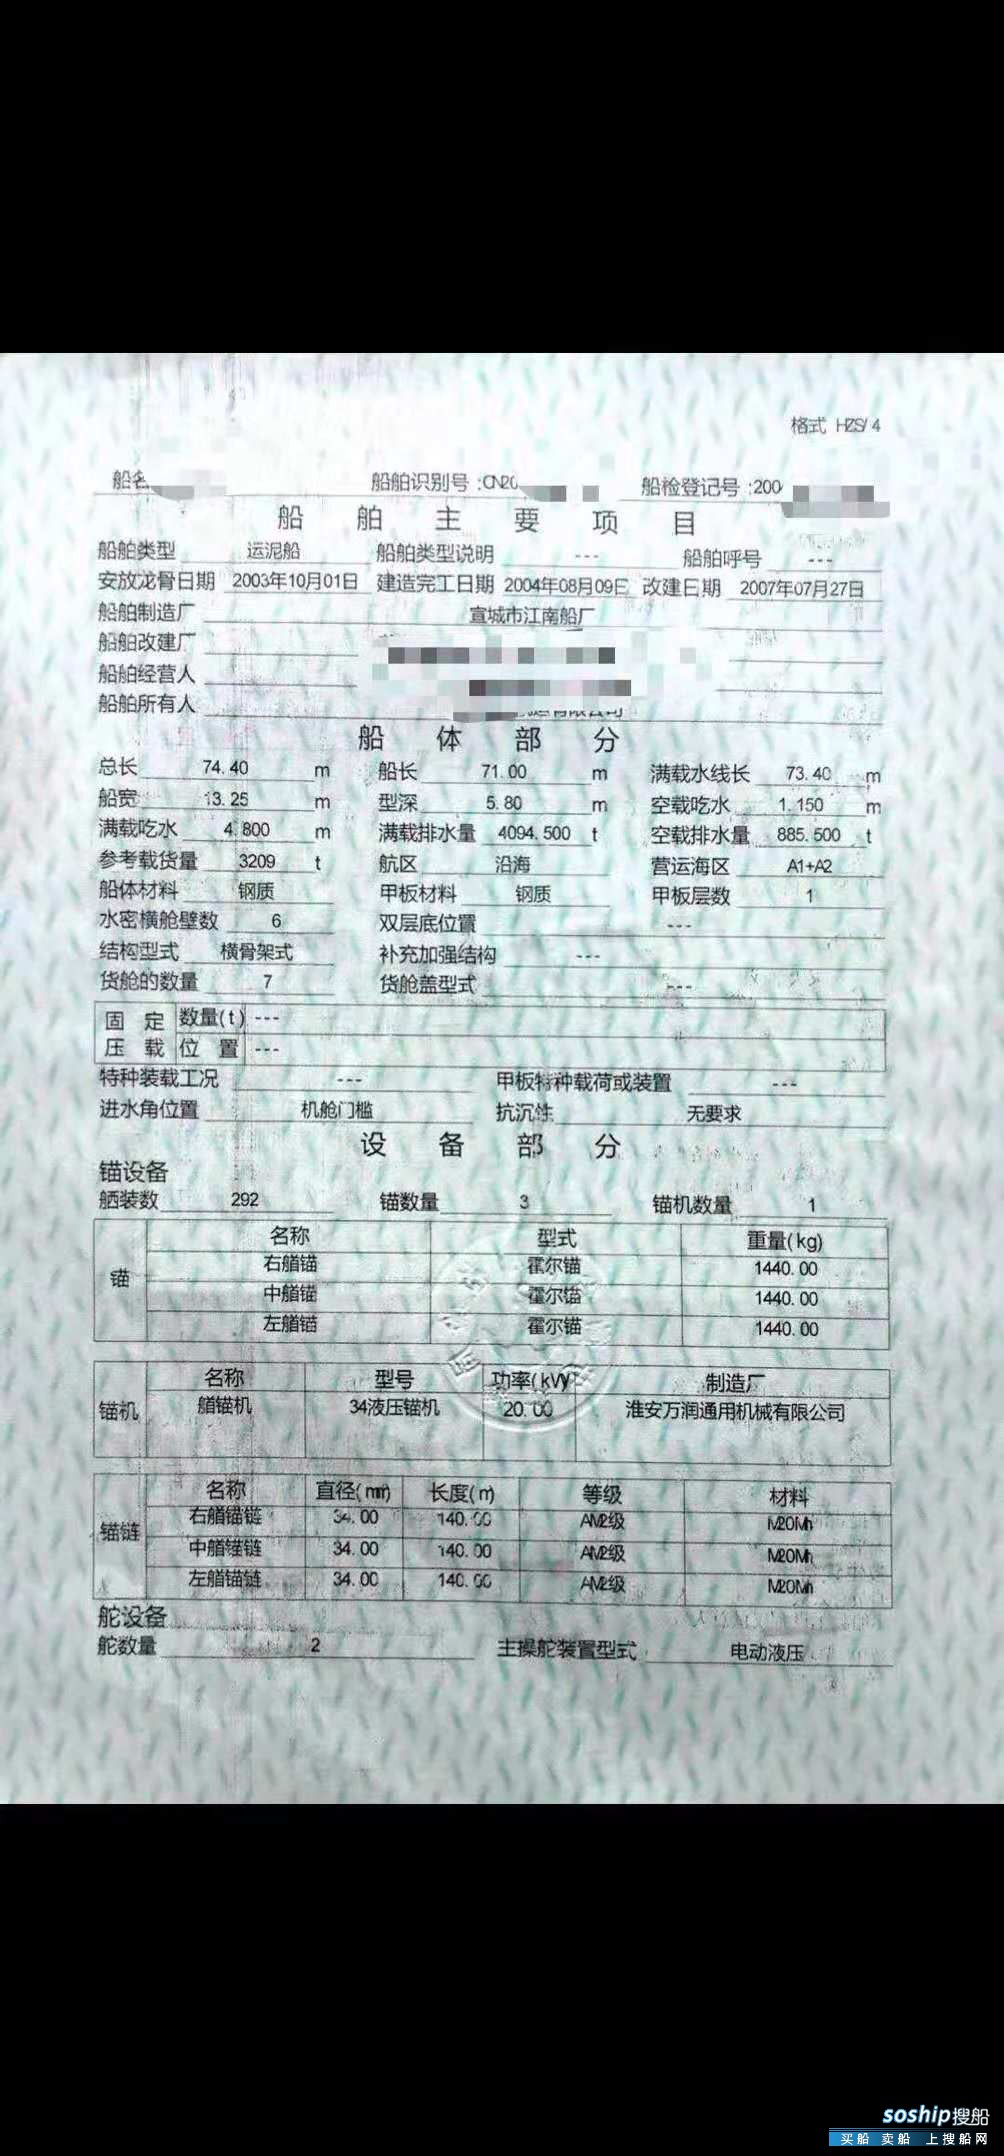 格式 HZS/4
船名 船舶识别号:CN20 船检登记号:200
船舶主要项目
船舶类型 运泥船 船舶类型说明 --- 船舶呼号 ---
安放龙骨日期 2003年10月01日 建造完工日期 2004年08月09日 改建日期 2007年07月27日
船舶制造厂 宣城市江南船厂
船舶改建厂
船舶经营人
船舶所有人 有限公司
船体部分
总长 74.40 m 船长 71.00 m 满载水线长 73.40 m
船宽 13.25 m 型深 5.80 m 空载吃水 1.150 m
满载吃水 4.800 m 满载排水量 4094.500 t 空载排水量 885.500 t
参考载货量 3209 t 航区 沿海 营运海区 A1+A2
船体材料 钢质 甲板材料 钢质 甲板层数 1
水密横舱壁数 6 双层底位置 ---
结构型式 横骨架式 补充加强结构 ---
货舱的数量 7 货舱盖型式 ---
固定 数量(t) ---
压载 位置 ---
特种装载工况 --- 甲板特种载荷或装置 ---
进水角位置 机舱门槛 抗沉性 无要求
设备部分
锚设备
舾装数 292 锚数量 3 锚机数量 1
名称 型式 重量(kg)
右艏锚 霍尔锚 1440.00
锚 中艏锚 霍尔锚 1440.00
左艏锚 霍尔锚 1440.00
名称 型号 功率(kW) 制造厂
锚机 艏锚机 34液压锚机 20.00 淮安万润通用机械有限公司
名称 直径(mm) 长度(m) 等级 材料
右艏锚链 34.00 140.00 AM2级 M20Mn
锚链 中艏锚链 34.00 140.00 AM2级 M20Mn
左艏锚链 34.00 140.00 AM2级 M20Mn
舵设备
舵数量 2 主操舵装置型式 电动液压
soship搜船
买船 卖船 上搜船网